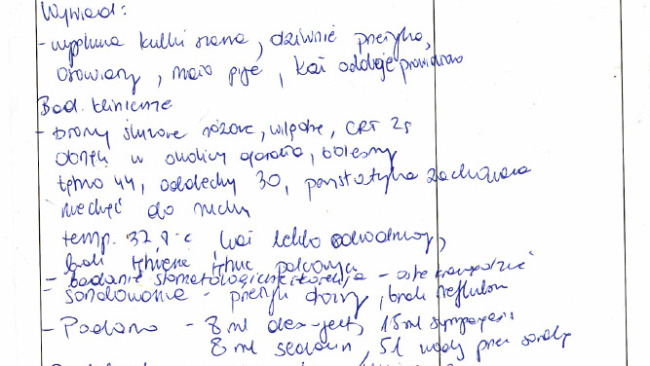 Wywiad:
- wypluwa kulki siana, dziwnie przeżyka,
osowiały, mało pije, kał oddaje prawidłowo
Bad. kliniczne
- błony śluzowe różowe, wilgotne, CRT 2s
obrzęk w okolicy gardła, bolesny
tętno 44, oddechy 30, perystaltyka zachowana
niechęć do ruchu
temp. 37,8°C koń lekko odwodniony,
brak tętnienia tętnic palcowych
- badanie stomatologiczne -
- sondowanie - przełyk drożny, brak refluksu
- Podano - 8 ml dexject, 15 ml
8 ml sedacin, 5 l wody przez sondę